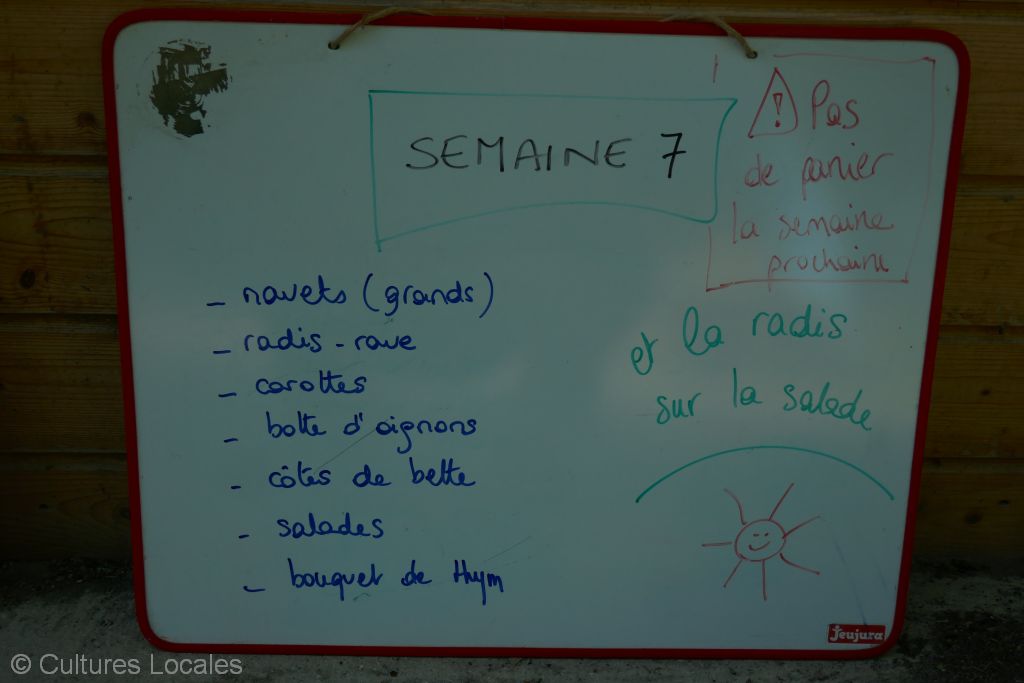 SEMAINE 7
! Pas
de panier
la semaine
prochaine
- navets (grands)
- radis-rave
- carottes
- botte d'oignons
- côtes de bette
- salades
- bouquet de thym
et la radis
sur la salade
Jeujura
© Cultures Locales